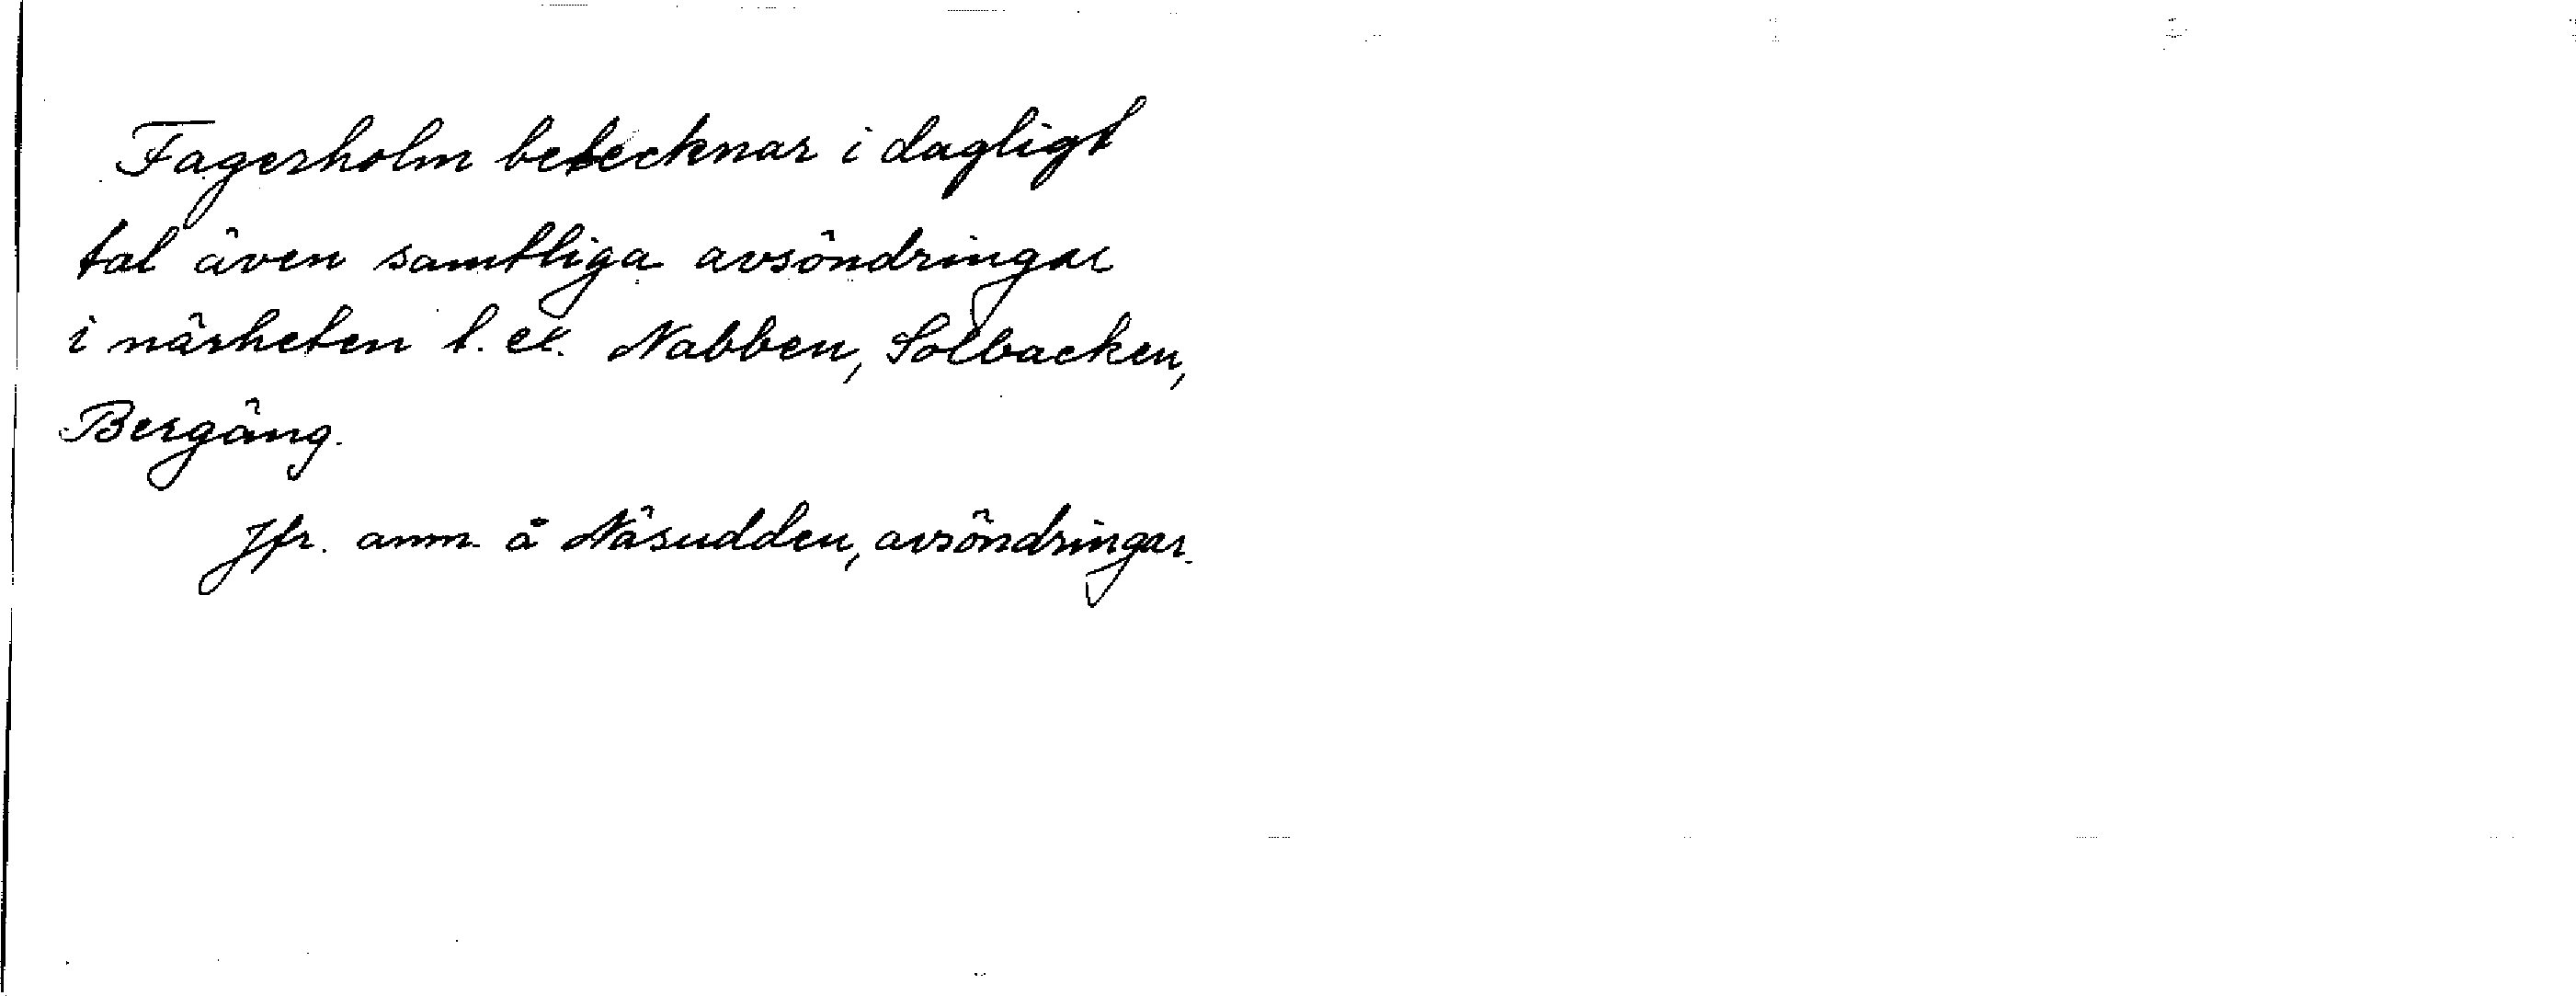 Fagerholm betecknar i dagligt
tal även samtliga avsöndringar
i närheten t. ex. Nabben, Solbacken,
Bergäng.
Jfr. anm. å Näsudden, avsöndringar.